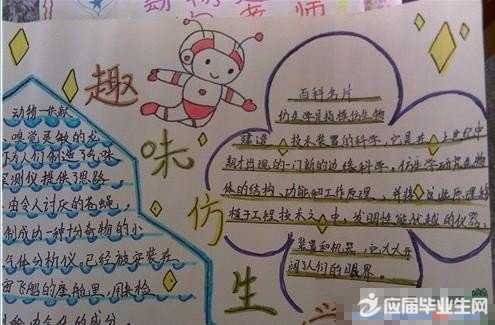 趣味仿生
动物贡献
嗅觉灵敏的龙
为人们制造
实测仪提供了思路
由令人讨厌的苍蝇,
制成功一种十分奇物的小
气体分析仪。已经被安装在
宙飞船的座舱里,用来检
舱内气体的成分。
百科名片
仿生学是指模仿生物
建造技术装置的科学,它是在上世纪中
期才出现的一门新的边缘科学。仿生学研究生物
体的结构、功能和工作原理,并将这些原理
植于工程技术之中,发明性能优越的仪器、
装置和机器,它大大开
阔了人们的眼界。
应届毕业生网